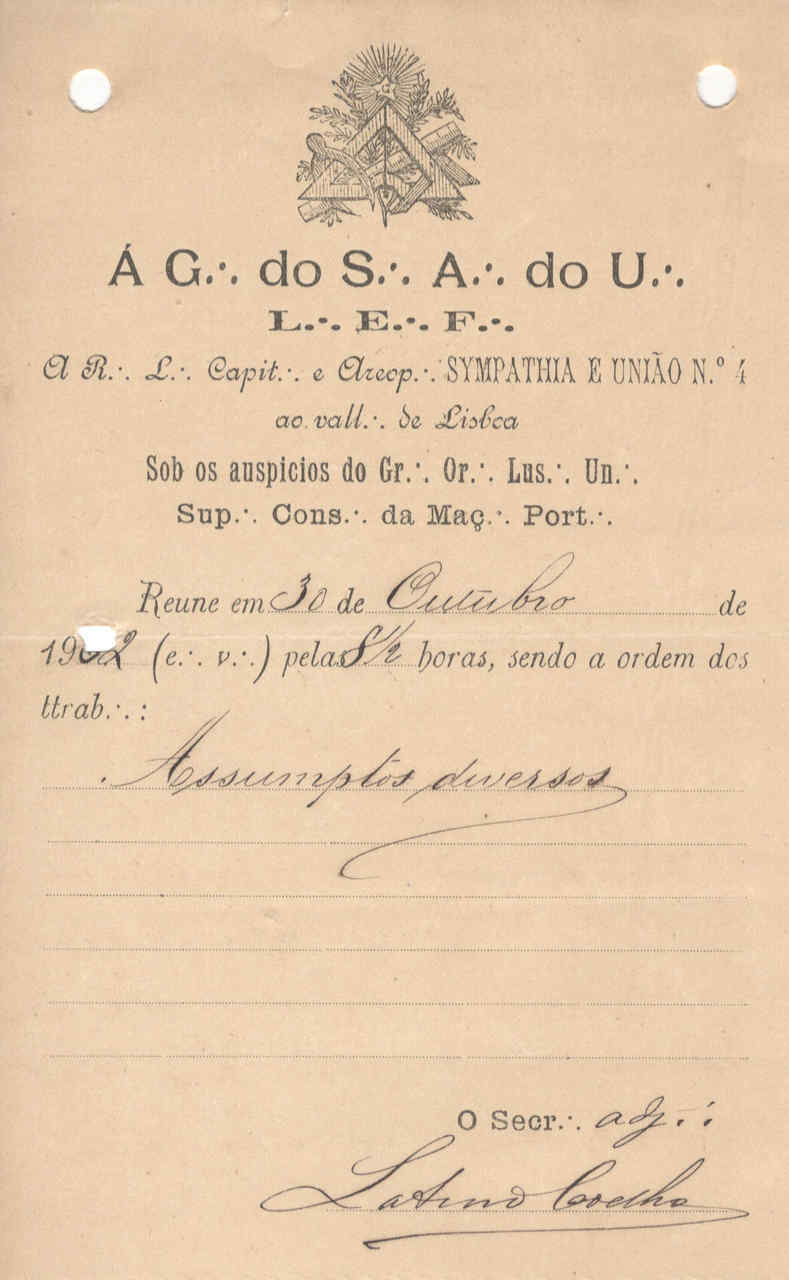 G
Á G.·. do S.·. A.·. do U.·.
L.·. E.·. F.·.
A R.·. L.·. Capit.·. e Areop.·. SYMPATHIA E UNIÃO N.º 4
ao vall.·. de Lisboa
Sob os auspicios do Gr.·. Or.·. Lus.·. Un.·.
Sup.·. Cons.·. da Maç.·. Port.·.
Reune em 30 de Outubro de
1902 (e.·. v.·.) pelas 8 1/2 horas, sendo a ordem dos
ttrab.·. :
Assumptos diversos
O Secr.·. adj.·.
Latino Coelho